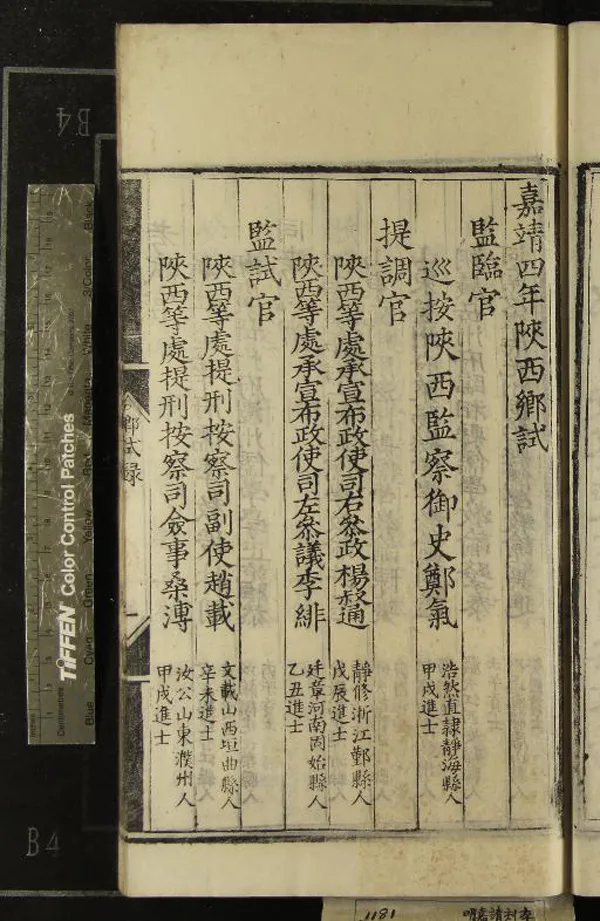 嘉靖四年陝西鄉試
監臨官
巡按陝西監察御史鄭氣
浩然直隸靜海縣人
甲戌進士
提調官
陝西等處承宣布政使司右叅政楊叅通
靜修浙江鄞縣人
戊辰進士
陝西等處承宣布政使司左叅議李緋
廷章河南固始縣人
乙丑進士
監試官
陝西等處提刑按察司副使趙載
文載山西垣曲縣人
辛未進士
陝西等處提刑按察司僉事桑溥
汝公山東濮州人
甲戌進士
鄉試録
一
TIFFEN Color Control Patches
Blue
Cyan
Green
Yellow
Red
Magenta
Black
Centimetres
Inches
B4
B4
1181